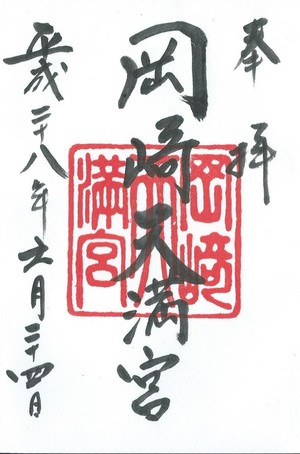 奉拝
岡崎天満宮
岡﨑天満宮
平成二十八年六月二十四日